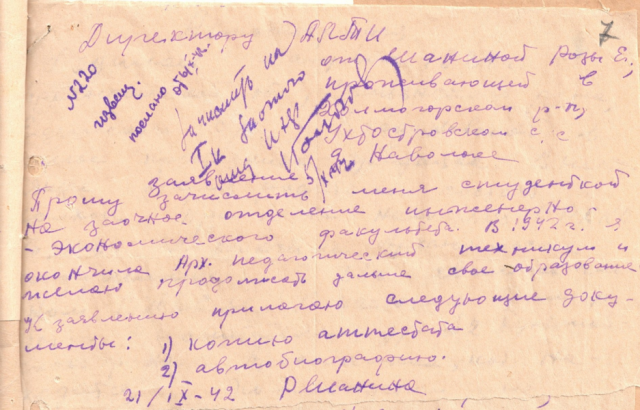 7
Директору АЛТИ
от Шаниной Розы Ег.,
проживающей в
Холмогорском р-не,
Ухтостровском с/с
д. Наволок
№220
извещ.
послано
Зачислить на
I к заочного
заявление
Прошу зачислить меня студенткой
на заочное отделение инженерно
- экономического факультета. В 1942 г. я
окончила Арх. педагогический техникум и
желаю продолжать дальше свое образование
К заявлению прилагаю следующие доку-
менты: 1) копию аттестата
2) автобиографию.
21/IX-42 РШанина